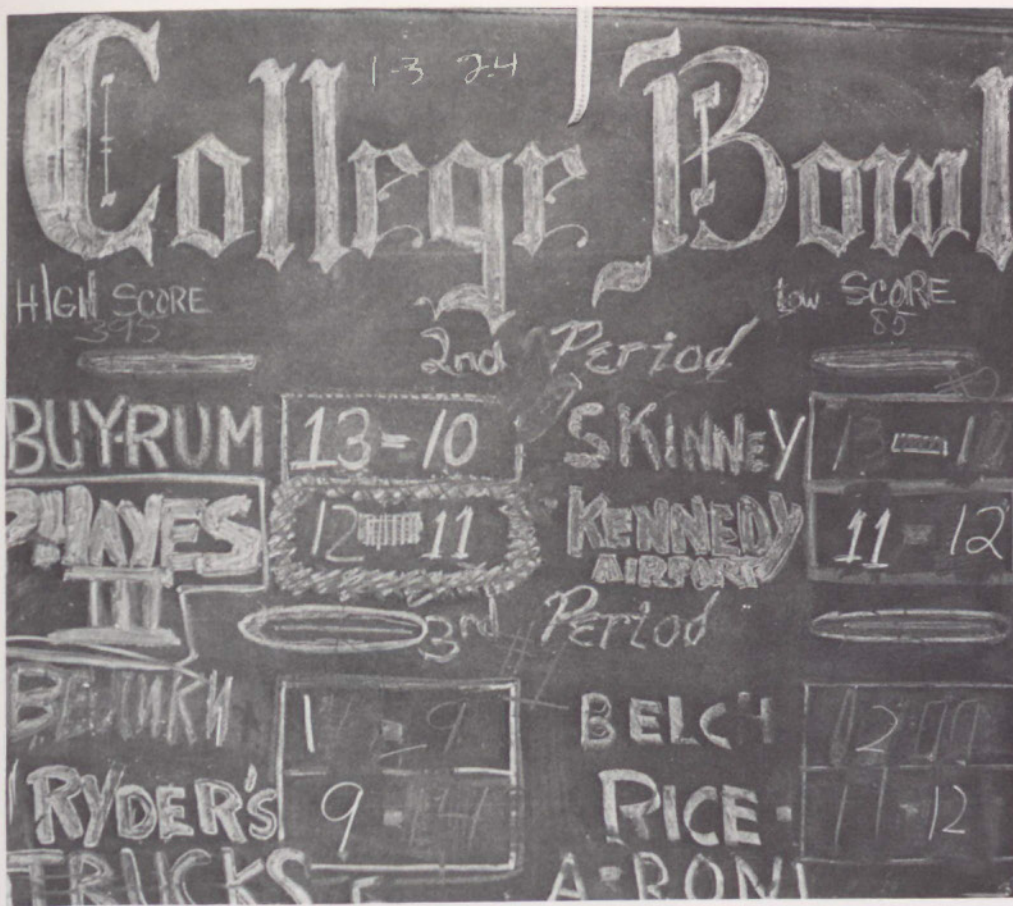 1-3 2-4
College Bowl
HIGH SCORE
395
Low SCORE
85
2nd Period
BUY-RUM 13-10
SKINNEY 13-10
HAYES II 12-11
KENNEDY AIRPORT 11-12
3rd Period
BELCH
RYDER'S TRUCKS 9-14
RICE-A-RONI 11-12